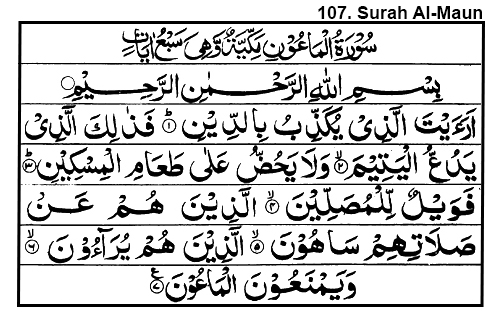 107. Surah Al-Maun
سُوْرَةُ الْمَاعُوْنِ مَكِّيَّةٌ وَّهِىَ سَبْعُ اٰيَاتٍ
بِسْمِ اللهِ الرَّحْمٰنِ الرَّحِيْمِ
اَرَءَيْتَ الَّذِىْ يُكَذِّبُ بِالدِّيْنِ ؕ﴿۱﴾ فَذٰلِكَ الَّذِىْ
يَدُعُّ الْيَتِيْمَ ۙ﴿۲﴾ وَلَا يَحُضُّ عَلٰى طَعَامِ الْمِسْكِيْنِ ؕ﴿۳﴾
فَوَيْلٌ لِّلْمُصَلِّيْنَ ۙ﴿۴﴾ الَّذِيْنَ هُمْ عَنْ
صَلَاتِهِمْ سَاهُوْنَ ۙ﴿۵﴾ الَّذِيْنَ هُمْ يُرَآءُوْنَ ۙ﴿۶﴾
وَيَمْنَعُوْنَ الْمَاعُوْنَ ﴿۷﴾ ع